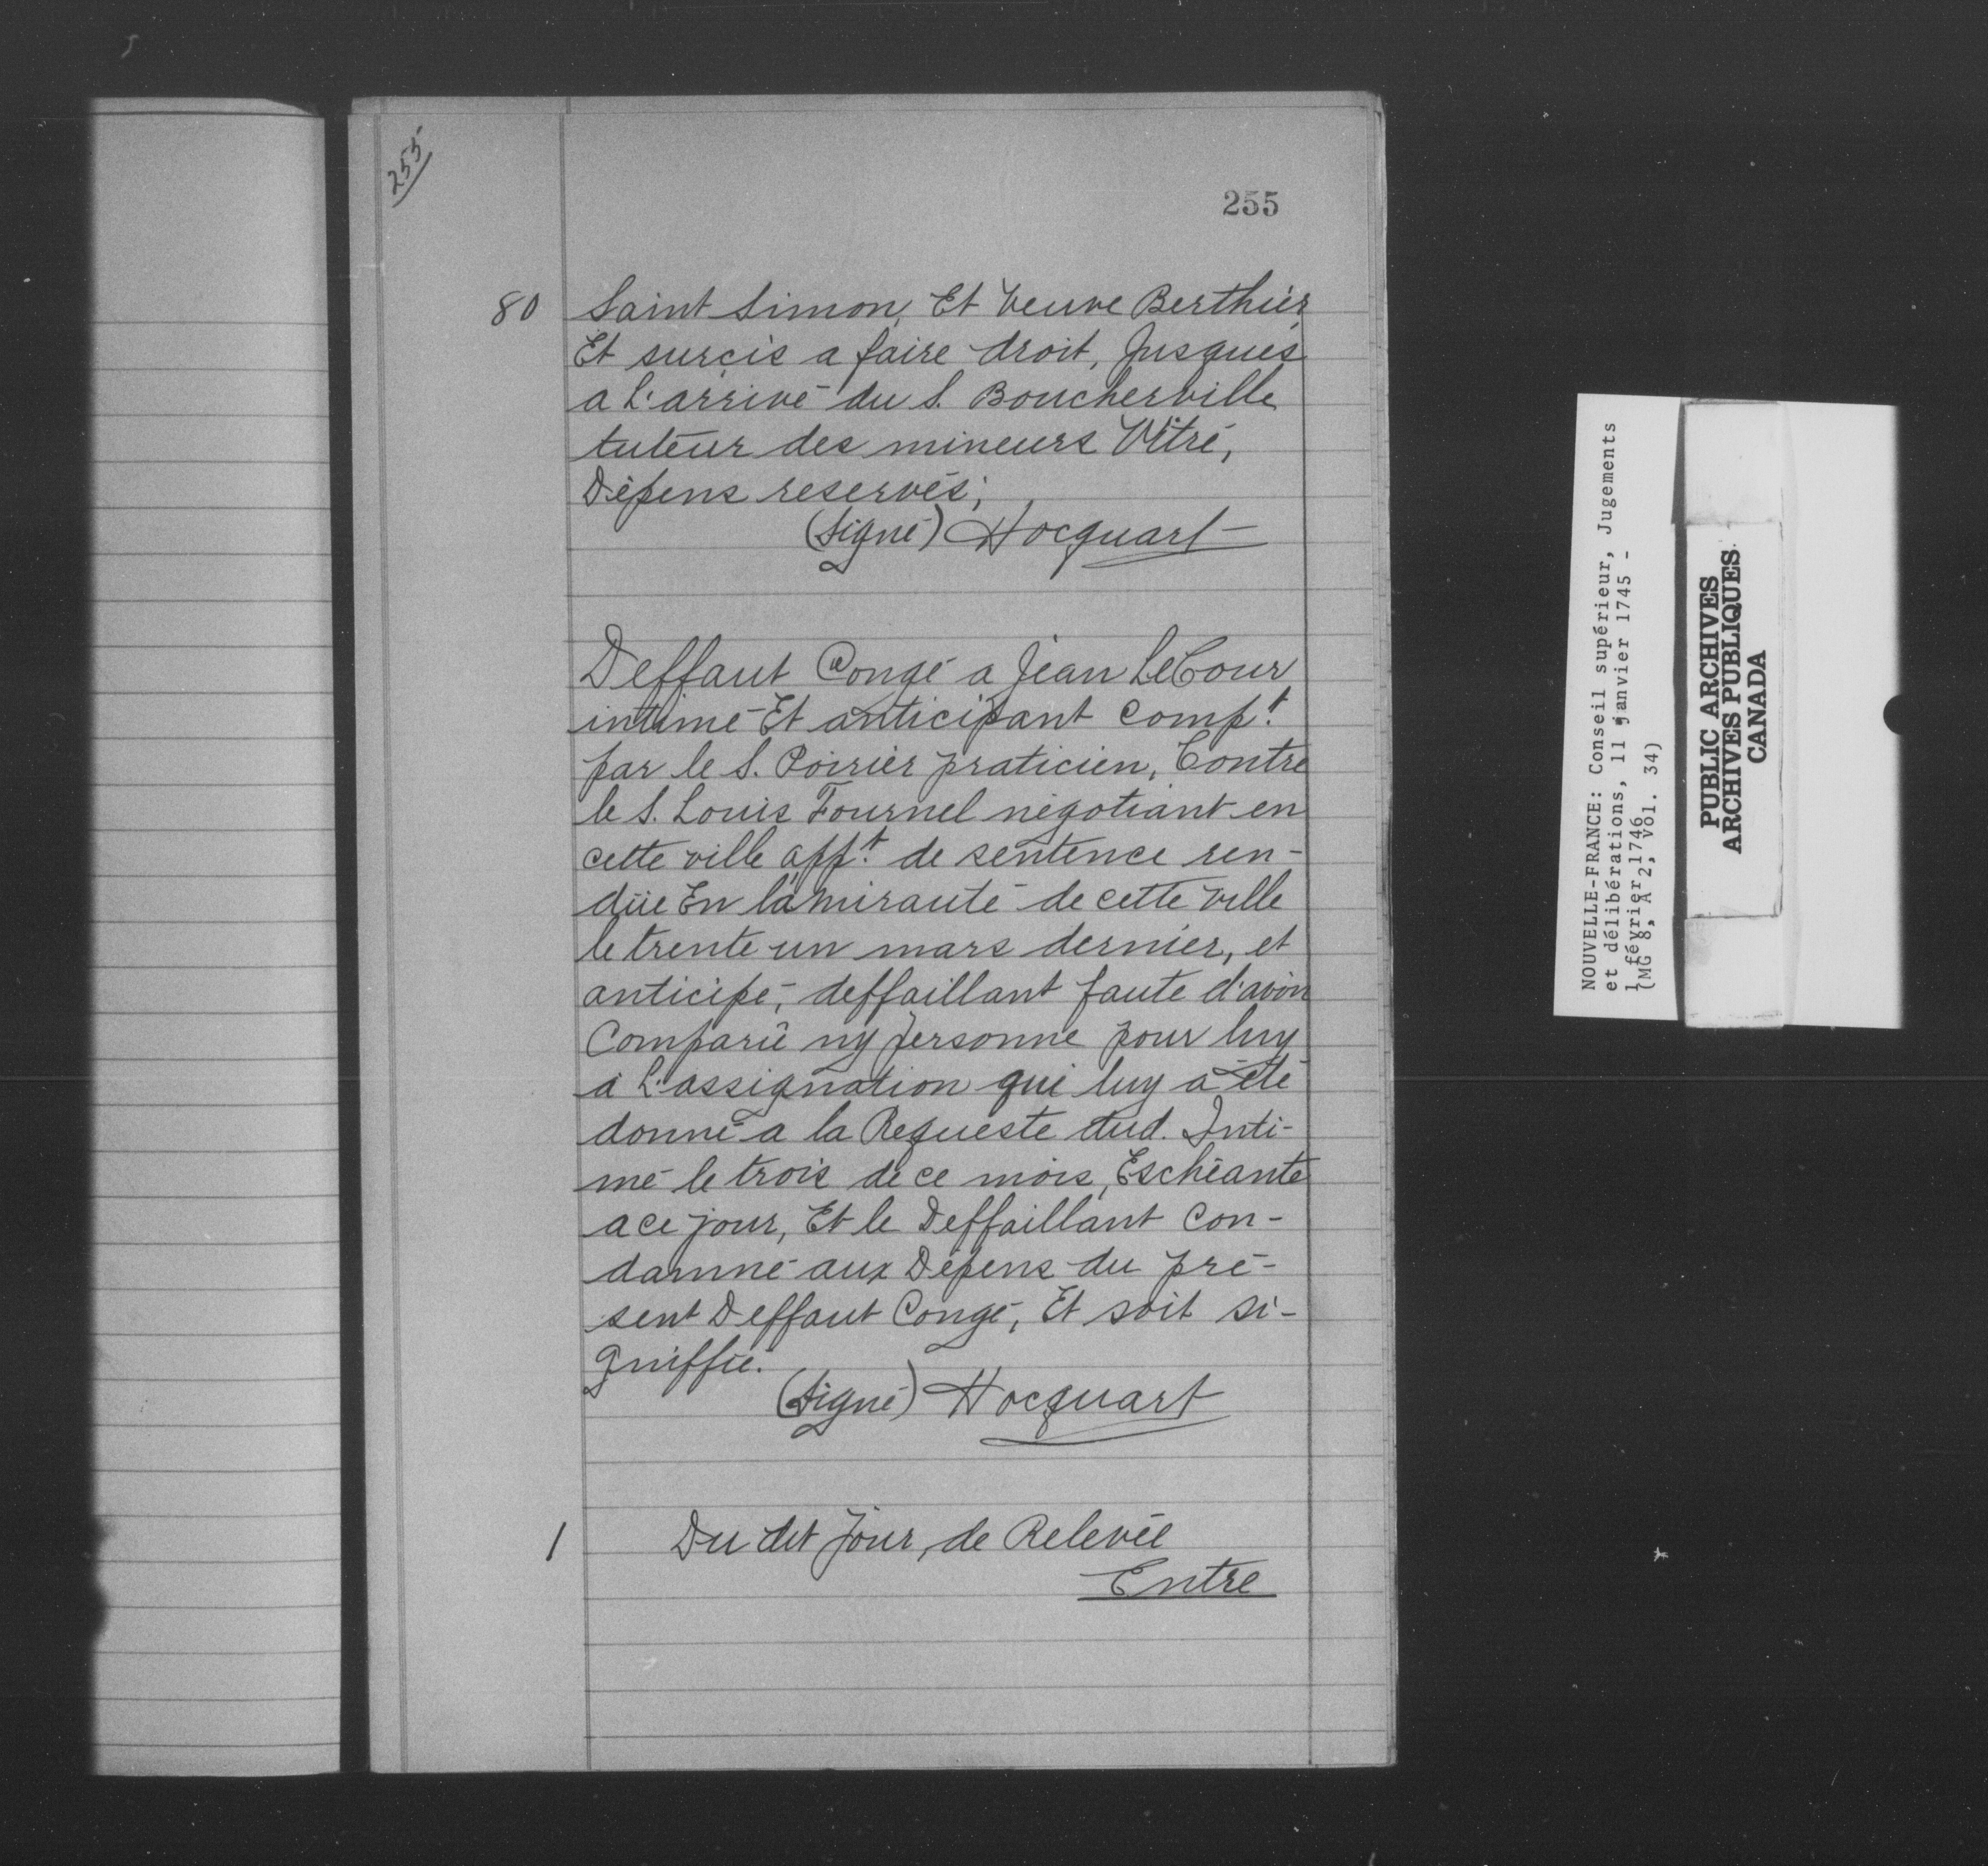 255
255
80 Saint Simon, Et Veuve Berthier
Et surçis a faire droit, Jusques
a L'arrivé du S. Boucherville
tuteur des mineurs Vitré,
Dépens reservés;
(Signé) Hocquart
Deffaut Congé a Jean LeCour
intimé Et anticipant Comp.t
par le S. Poirier praticien, Contre
le S. Louis Fournel négotiant en
cette ville app.t de sentence ren-
düe En l'amirauté de cette ville
le trente un mars dernier, et
anticipé, deffaillant faute d'avoir
Comparû ny personne pour luy
a L'assignation qui luy a été
donné a la Requeste dud. Inti-
mé le trois de ce mois, Eschéante
a ce jour, Et le Deffaillant Con-
damné aux Dépens du pré-
sent Deffaut Congé, Et soit si-
gniffié.
(Signé) Hocquart
1 Du dit Jour, de Relevée
Entre
NOUVELLE-FRANCE: Conseil supérieur, Jugements
et délibérations, 11 janvier 1745 -
1 février 1746
(MG 8, A 2, vol. 34)
PUBLIC ARCHIVES
ARCHIVES PUBLIQUES
CANADA